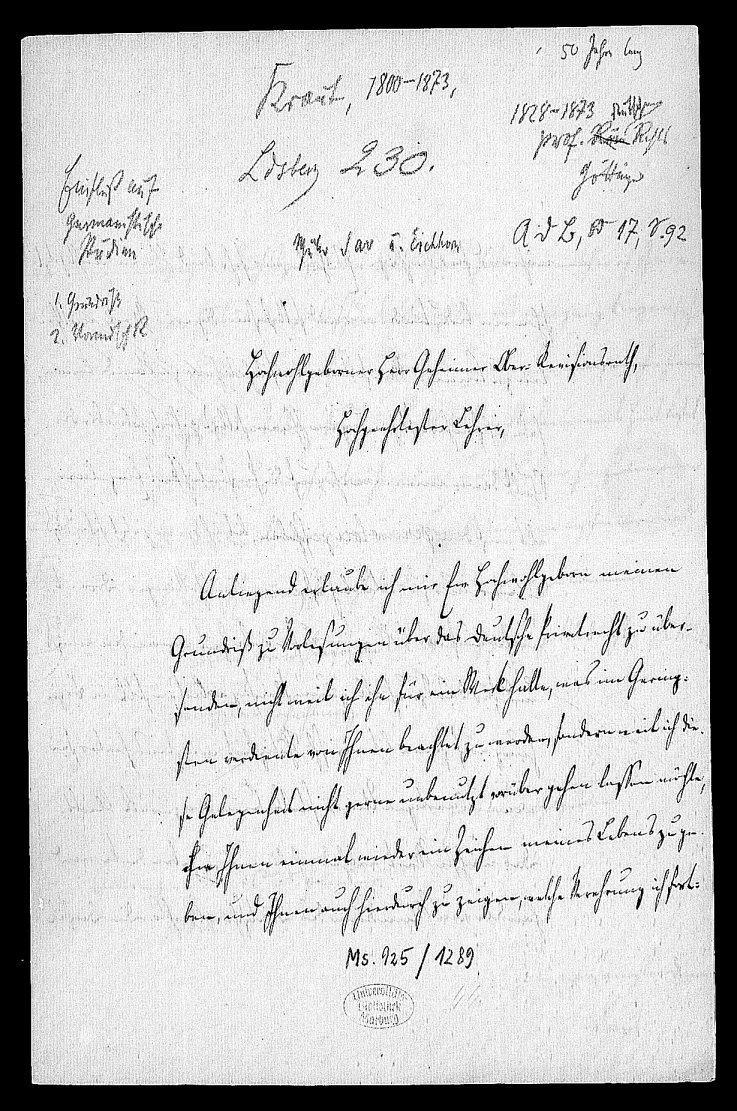 50 Jahre lang
Kraut, 1800–1873,
1828–1873
Prof. Rechts
Göttingen
Ldsberg 230.
Einfluß auf
Germanistische
Studien
1. Grundriß
2. Vormdsch
Schüler Sav u. Eichhorn
A d B, Bd 17, S. 92
Hochwohlgeborner Herr Geheimer Ober-Revisionsrath,
Hochgeehrtester Lehrer,
Anliegend erlaube ich mir Ew Hochwohlgeborn meinen
Grundriß zu Vorlesungen über das deutsche Privatrecht zu über-
senden, nicht weil ich ihn für ein Werk halte, was im Gering-
sten verdiente von Ihnen beachtet zu werden, sondern weil ich die-
se Gelegenheit nicht gerne unbenutzt vorüber gehen lassen möchte,
Ihnen einmal wieder ein Zeichen meines Lebens zu ge-
ben, und Ihnen auch hierdurch zu zeigen, welche Verehrung ich fort-
Ms. 925 / 1289
Universitäts
Bibliothek
Marburg